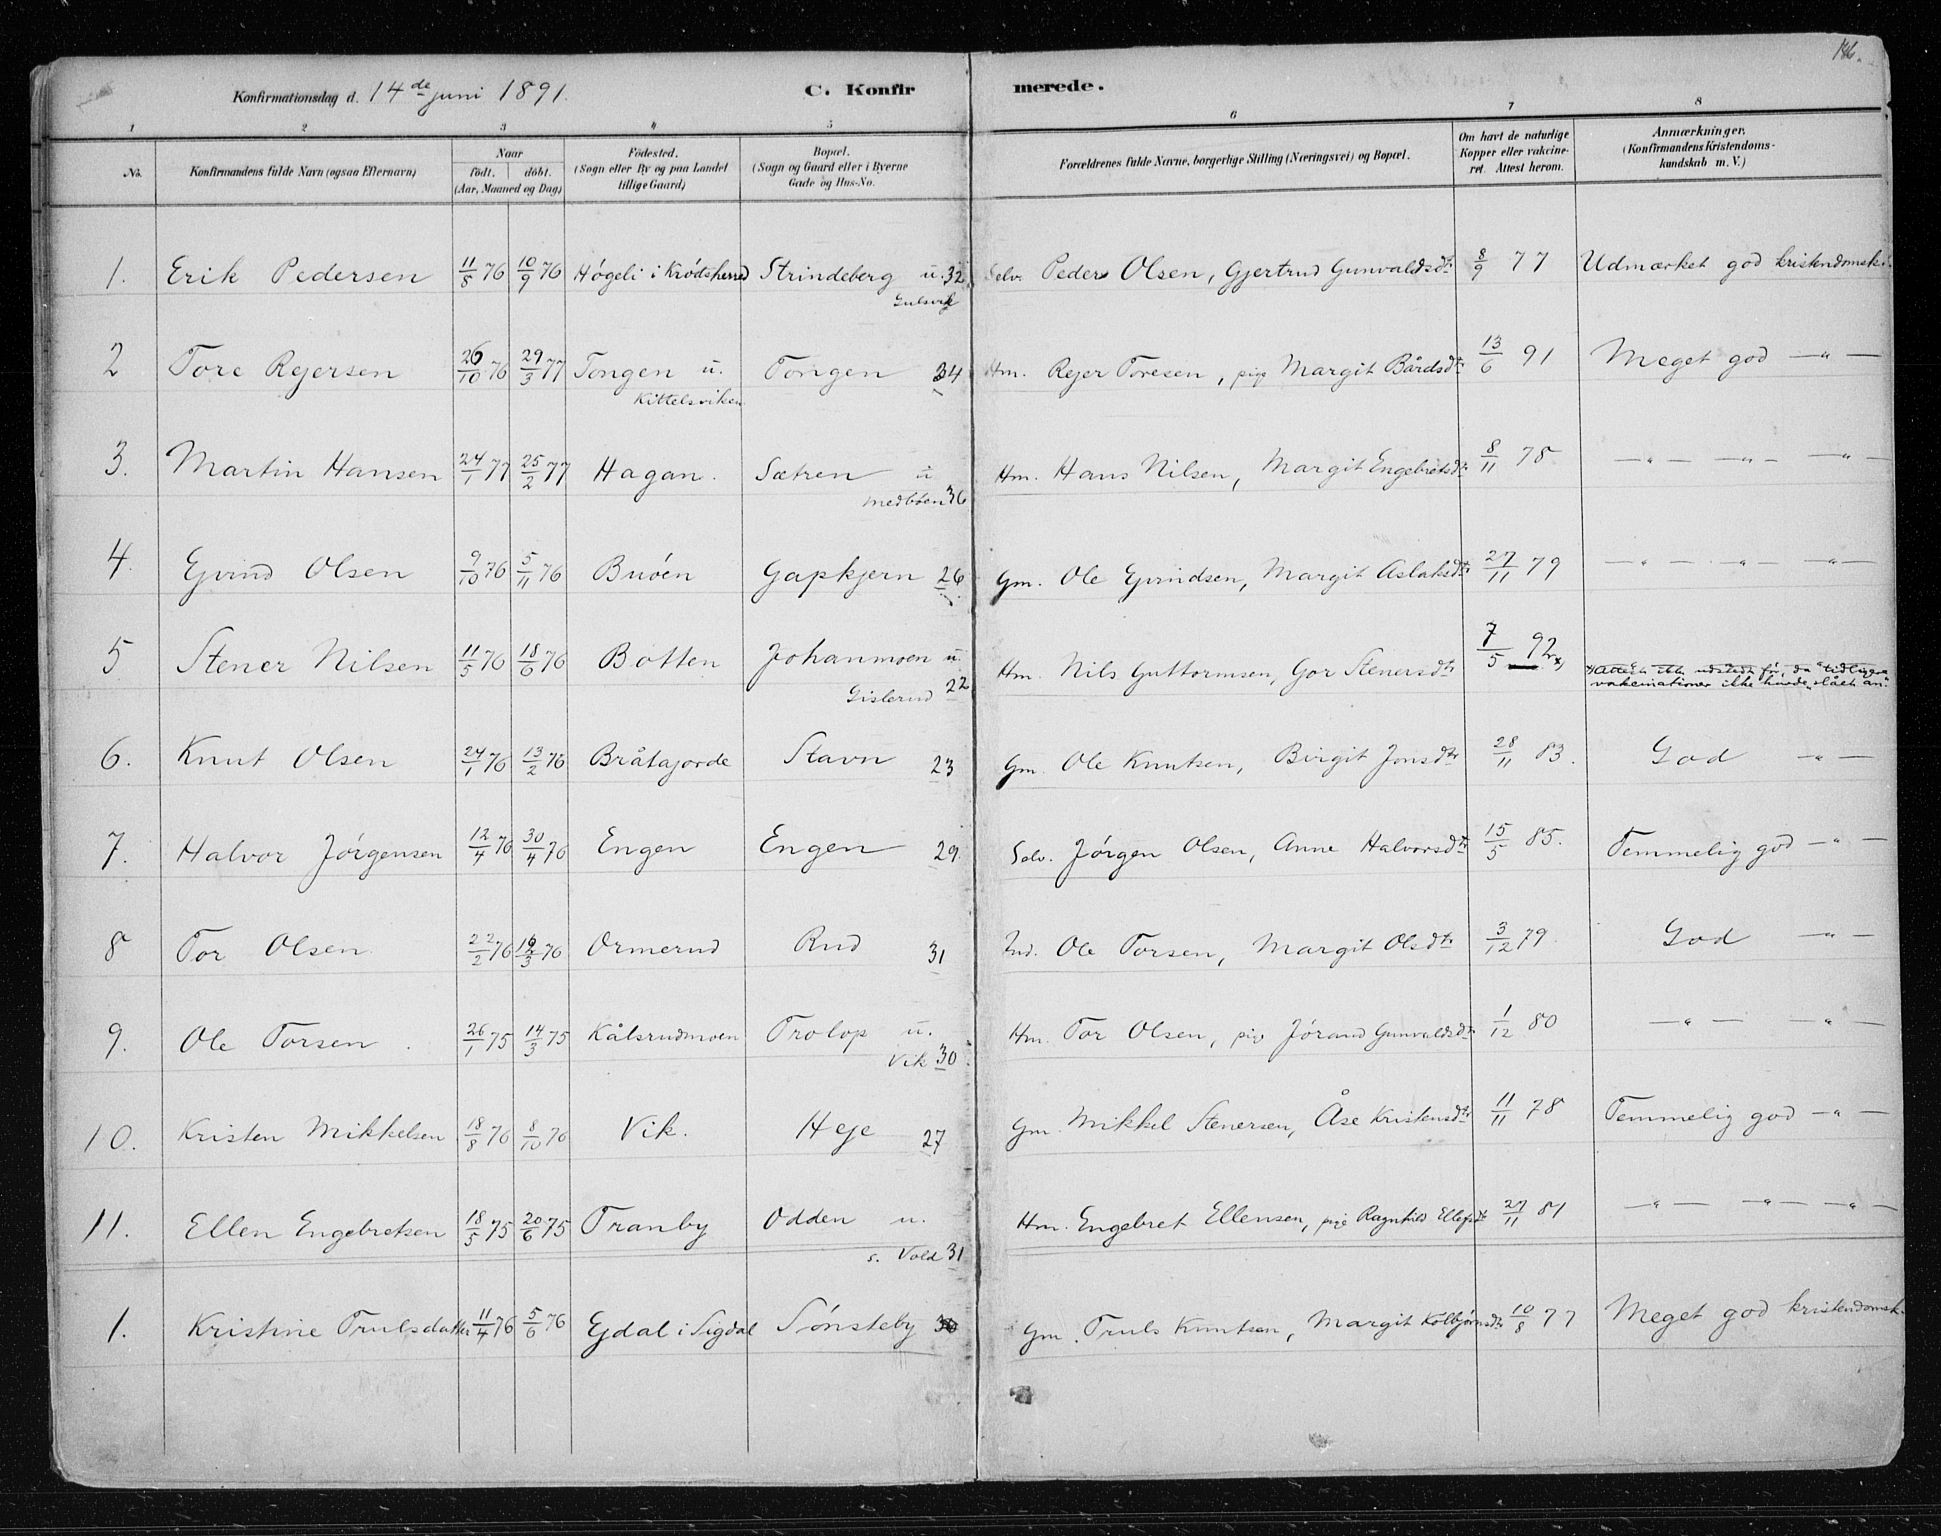 146.
Konfirmationsdag d. 14de juni 1891.
C. Konfir merede.
1 2 3 4 5 6 7 8
No. Konfirmandens fulde Navn (ogsaa Efternavn) Naar født. døbt. (Aar, Maaned og Dag) Fødested. (Sogn eller By og paa Landet tillige Gaard) Bopæl. (Sogn og Gaard eller i Byerne Gade og Hus-No. Forældrenes fulde Navne, borgerlige Stilling (Næringsvei) og Bopæl. Om havt de naturlige Kopper eller vakcineret. Attest herom. Anmærkninger. (Konfirmandens Kristendomskundskab m. V.)
1. Erik Pedersen 11/8 76 10/9 76 Høgeli i Krødsherred Strindeberg u. 32 Selv. Peder Olsen, Gjertrud Gunvaldsdtr 8/9 77 Udmærket god kristendomsk.
Gulsvik
2 Tore Rejersen 26/10 76 29/3 77 Tongen u. Tongen 34 Hm. Rejer Toresen, pige Margit Bårdsdtr 13/6 91 Meget god —"—
Kittelsviken
3. Martin Hansen 24/1 77 25/2 77 Hagan. Sætren u Hm. Hans Nilsen, Margit Engebretsdtr 8/11 78 —"— —"— —"—
Medbøen 36
4. Ejvind Olsen 9/10 76 5/11 76 Buøen Gapkjern 26 Gm. Ole Ejvindsen, Margit Aslaksdtr 27/11 79 —"— —"— —"—
5 Stener Nilsen 11/5 76 18/6 76 Botten Johanmoen u. Hm. Nils Guttormsen, Gor Stenersdtr 7/5 92 x)
Gislerud 22
vakcinationer ikke havde slået an.
6. Knut Olsen 24/1 76 13/2 76 Bråtajorde Stavn 23 Gm. Ole Knutsen, Birgit Jonsdtr 28/11 83. God —"—
7. Halvor Jørgensen 12/4 76 30/4 76 Engen Engen 29. Selv. Jørgen Olsen, Anne Halvorsdtr 15/5 85. Temmelig god —"—
8 Tor Olsen 22/2 76 /3 76 Ormerud Rud 31 Ind. Ole Torsen, Margit Olsdtr 3/12 79. God —"—
9. Ole Torsen. 26/1 75 14/3 75 Kålsrudmoen Trolop u. Hm. Tor Olsen, pige Jørand Gunvaldsdtr 1/12 80 —"— —"—
Vik 30
10. Kristen Mikkelsen 18/8 76 8/10 76 Vik. Heje 27 Gm. Mikkel Stenersen, Åse Kristensdtr 11/11 78 Temmelig god —"—
11. Ellen Engebretsen 18/5 75 20/6 75 Tranby Odden u. Hm. Engebret Ellensen, pige Ragnhild Ellefsdtr 27/11 81 —"— —"— —"—
s. Vold 31
1. Kristine Trulsdatter 11/4 76 5/6 76 Ejdal i Sigdal Sønsteby 30 Gm. Truls Knutsen, Margit Kolbjørnsdtr 10/8 77 Meget god kristendomsk.